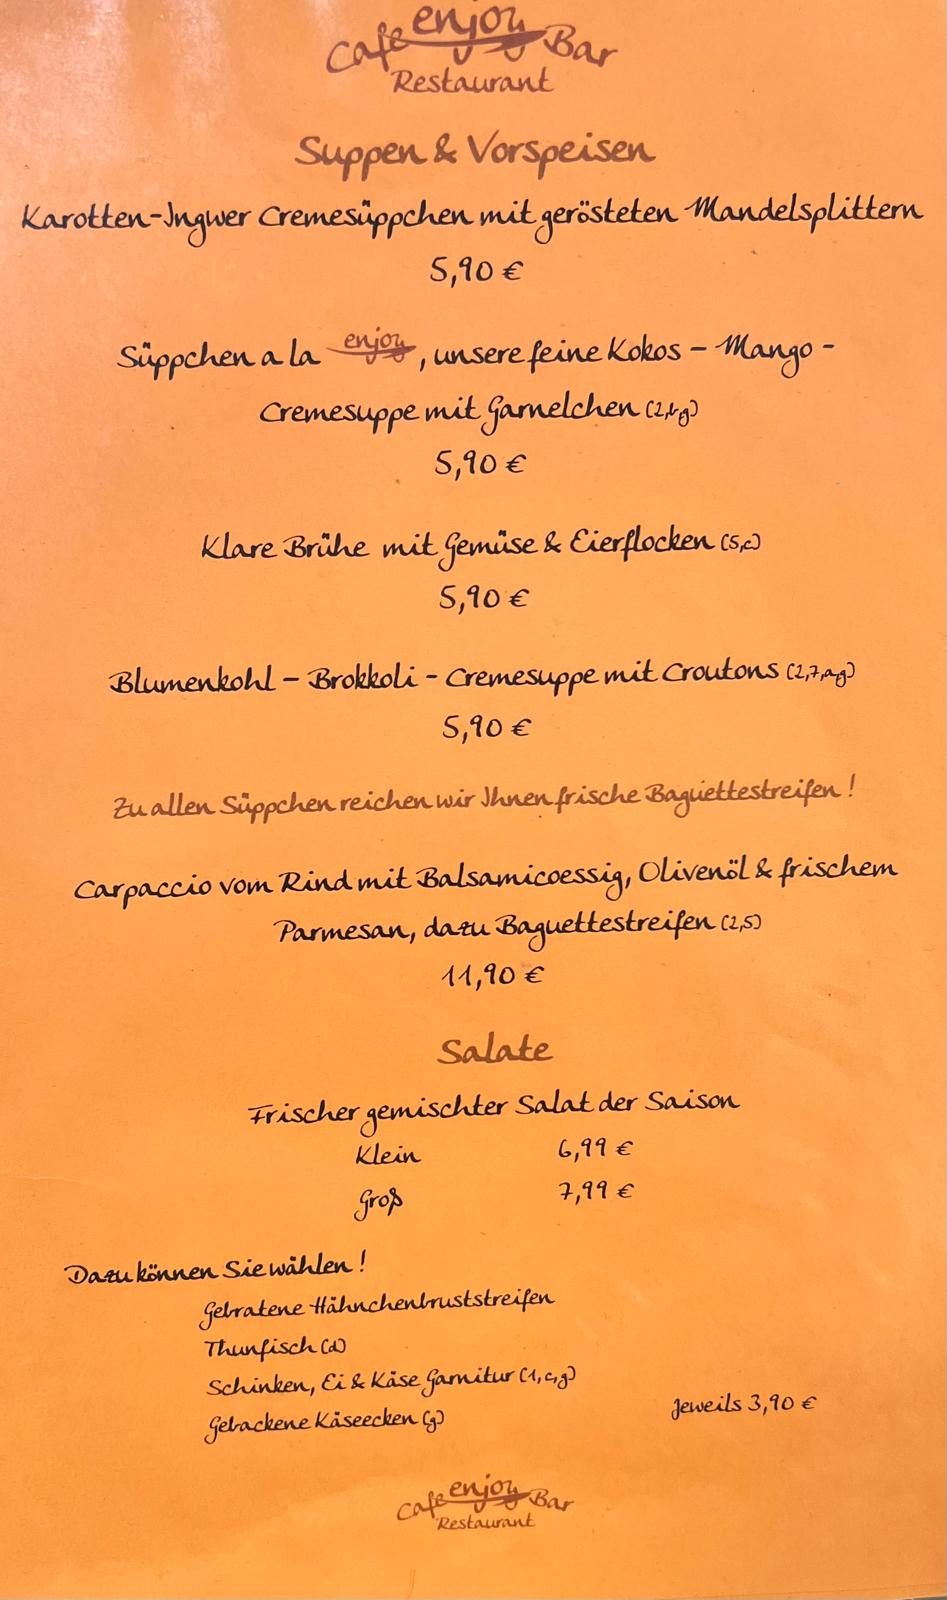 Cafe enjoy Bar
Restaurant
Suppen & Vorspeisen
Karotten-Ingwer Cremesüppchen mit gerösteten Mandelsplittern
5,90 €
Süppchen a la enjoy, unsere feine Kokos – Mango -
Cremesuppe mit Garnelchen (2,b,g)
5,90 €
Klare Brühe mit Gemüse & Eierflocken (5,c)
5,90 €
Blumenkohl – Brokkoli - Cremesuppe mit Croutons (2,7,a,g)
5,90 €
Zu allen Süppchen reichen wir Ihnen frische Baguettestreifen !
Carpaccio vom Rind mit Balsamicoessig, Olivenöl & frischem
Parmesan, dazu Baguettestreifen (2,5)
11,90 €
Salate
Frischer gemischter Salat der Saison
Klein 6,99 €
Groß 7,99 €
Dazu können Sie wählen !
Gebratene Hähnchenbruststreifen
Thunfisch (d)
Schinken, Ei & Käse Garnitur (1,c,g)
Gebackene Käseecken (g) Jeweils 3,90 €
Cafe enjoy Bar
Restaurant